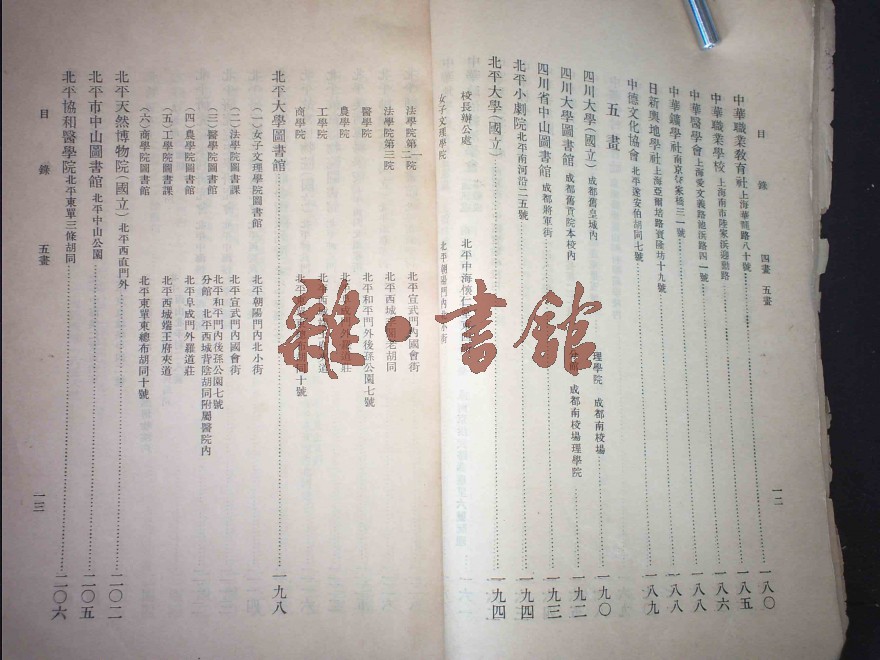 目錄 四畫 五畫 一二
中華職業教育社 上海華龍路八十號 一八〇
中華職業學校 上海南市陸家浜迎勳路 一八五
中華醫學會 上海愛文義路池浜路四一號 一八六
中華鑛學社 南京 家橋三一號 一八八
日新輿地學社 上海亞爾培路 坊十九號 一八八
中德文化協會 北平遂安伯胡同七號 一八九
五畫
四川大學(國立) 成都舊皇城內 理學院 成都南校場 一九〇
四川大學圖書館 成都舊貢院本校內 成都南校場理學院 一九二
四川省中山圖書館 成都將軍街 一九三
北平小劇院 北平南河沿二五號 一九四
北平大學(國立) 一九四
校長辦公處 北平中海懷仁
女子文理學院 北平朝陽門內 街
法學院第一院 北平宣武門內國會街
法學院第三院 北平西城 老胡同
醫學院 北平和平門外後孫公園七號
農學院 北平阜成門外羅道莊
工學院 北平西 夾道
商學院 北平東 同十號
北平大學圖書館 一九八
(一)女子文理學院圖書館 北平朝陽門內北小街
(二)法學院圖書課 北平宣武門內國會街
(三)醫學院圖書館 北平和平門內後孫公園七號
分館 北平西城背陰胡同附屬醫院內
(四)農學院圖書館 北平阜成門外羅道莊
(五)工學院圖書課 北平西城端王府夾道
(六)商學院圖書館 北平東單東總布胡同十號
北平天然博物院(國立) 北平西直門外 二〇二
北平市中山圖書館 北平中山公園 二〇五
北平協和醫學院 北平東單三條胡同 二〇六
目錄 五畫 一三
雜·書館